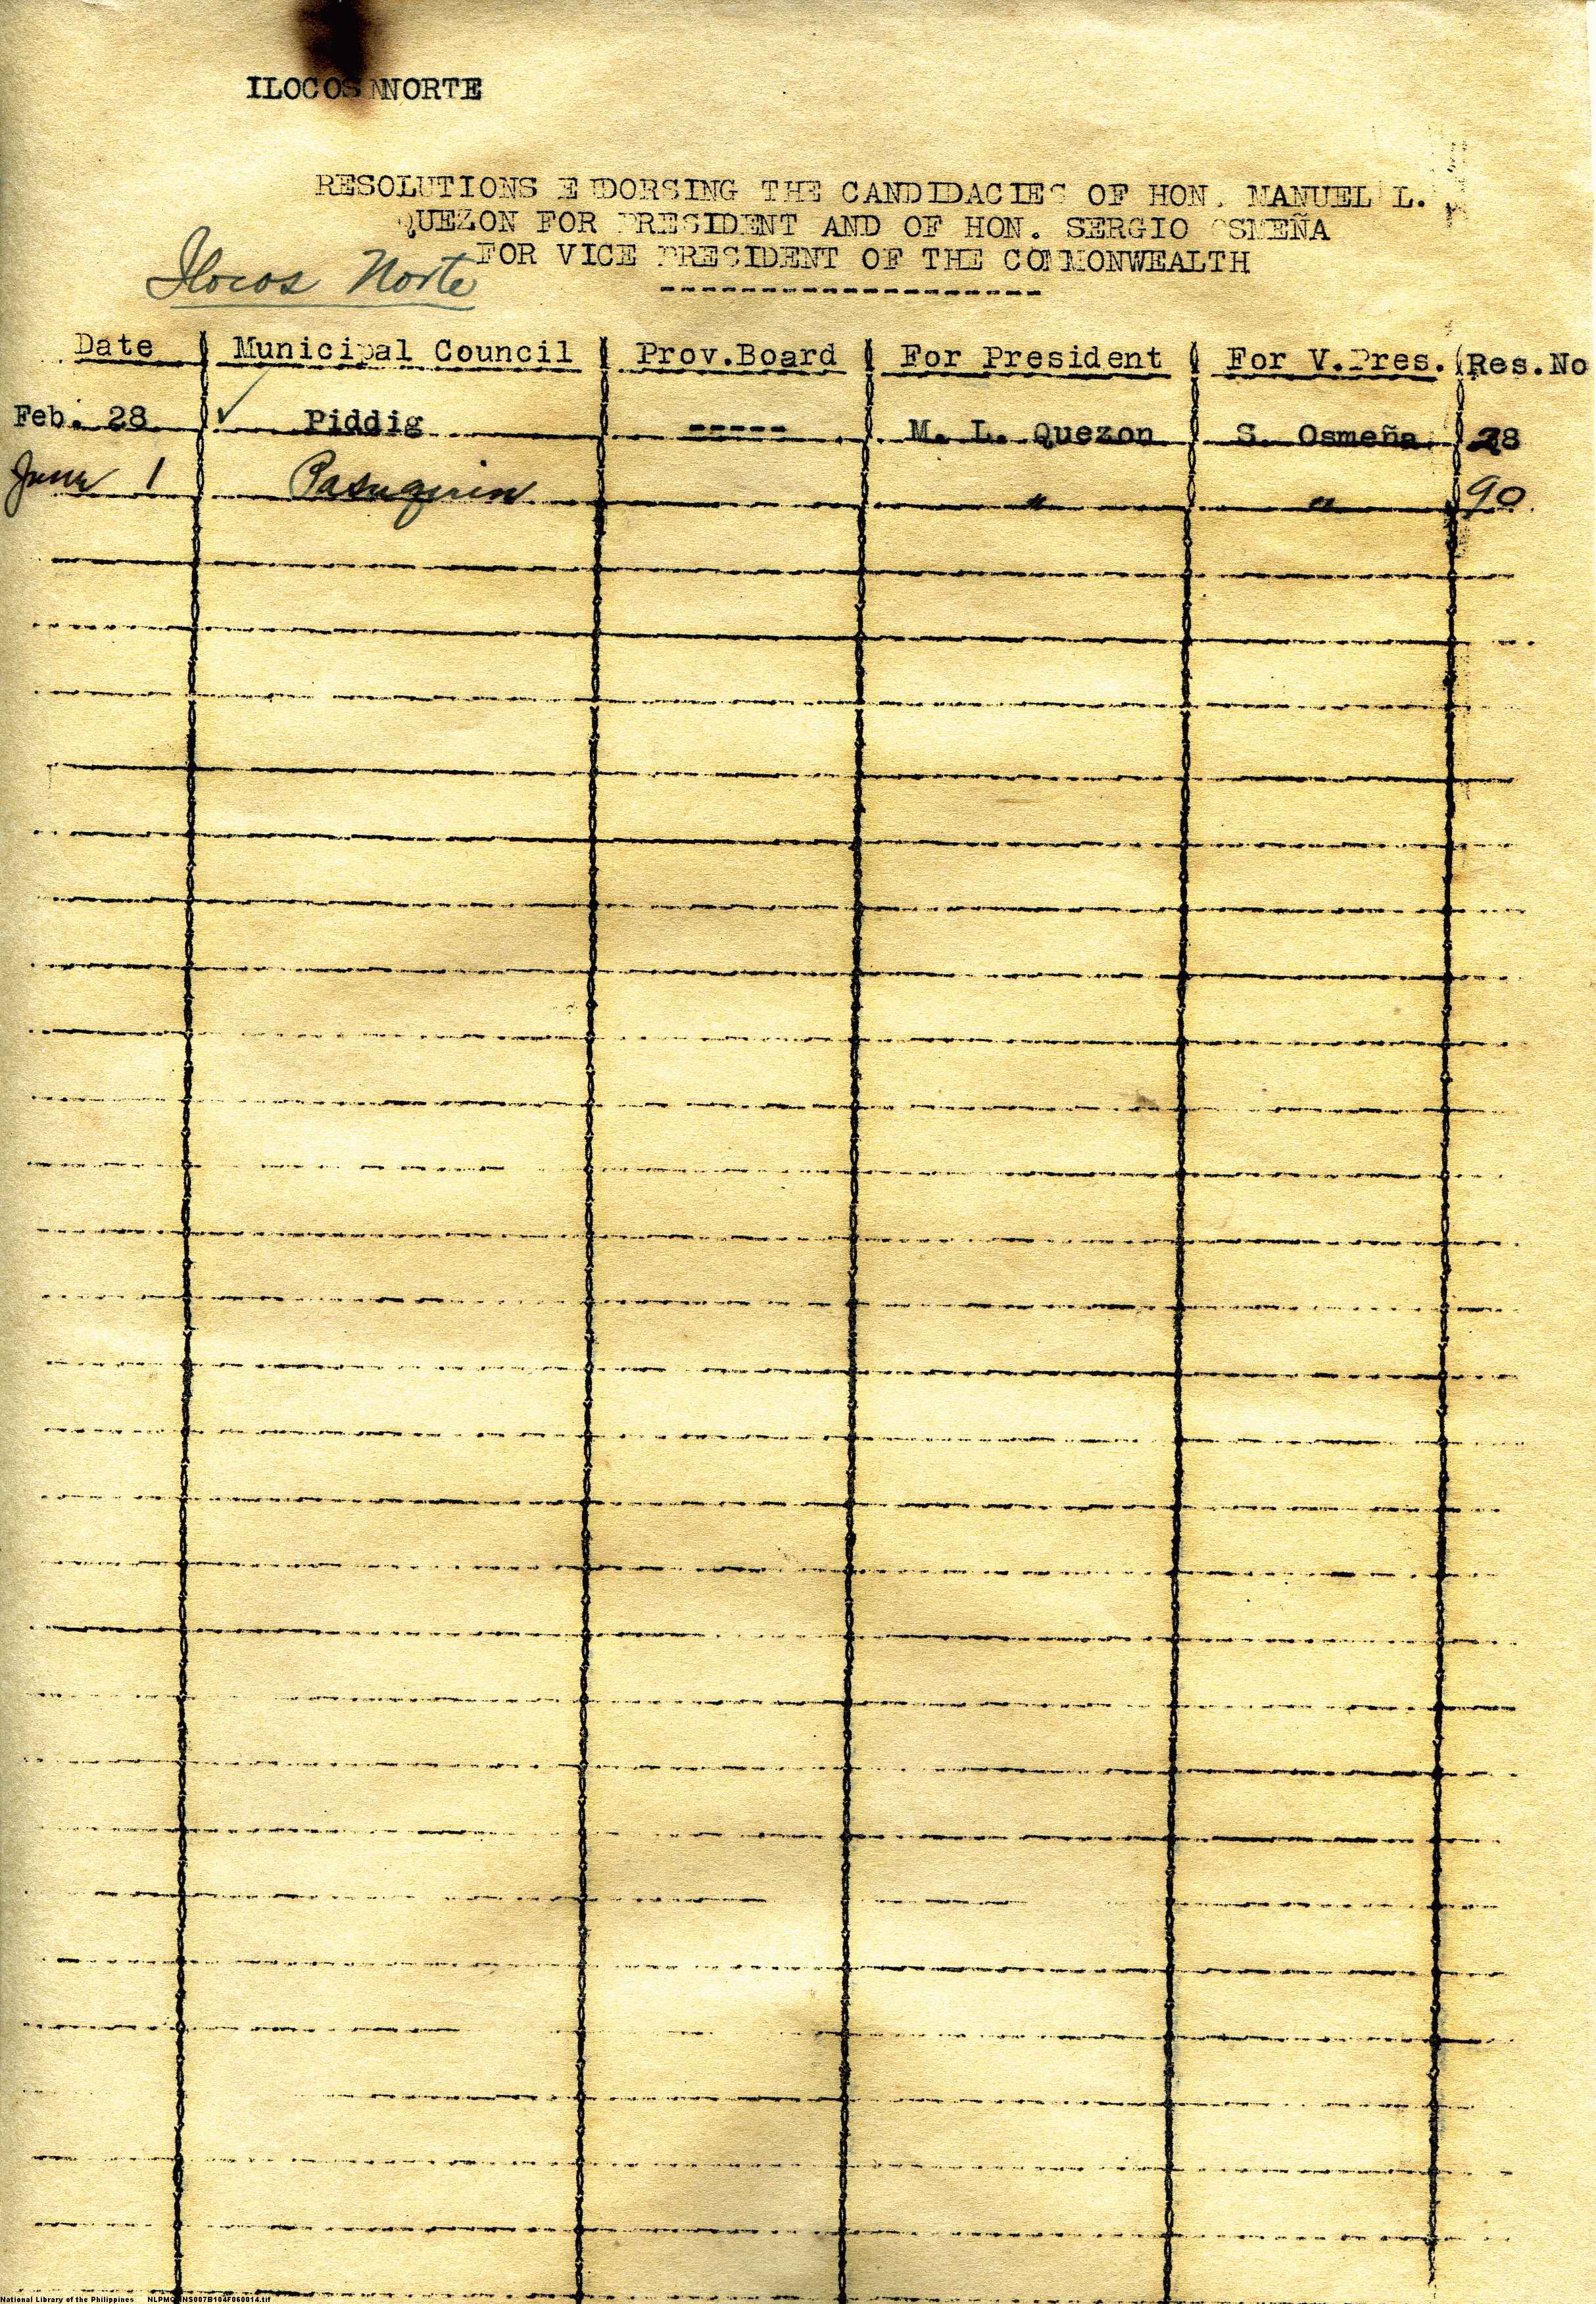 ILOCOS NNORTE
RESOLUTIONS ENDORSING THE CANDIDACIES OF HON. MANUEL L.
QUEZON FOR PRESIDENT AND OF HON. SERGIO OSMEÑA
FOR VICE PRESIDENT OF THE COMMONWEALTH
Ilocos Norte
Date Municipal Council Prov.Board For President For V.Pres. Res.No
Feb. 28 ✓ Piddig ----- M. L. Quezon S. Osmeña 28
June 1 Pasuquin " " 90
National Library of the Philippines